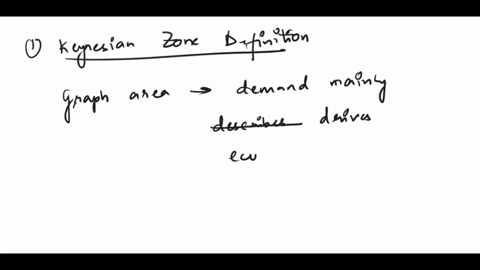 ① Keynesian Zone Definition
Graph area → demand mainly
describes derives
eco